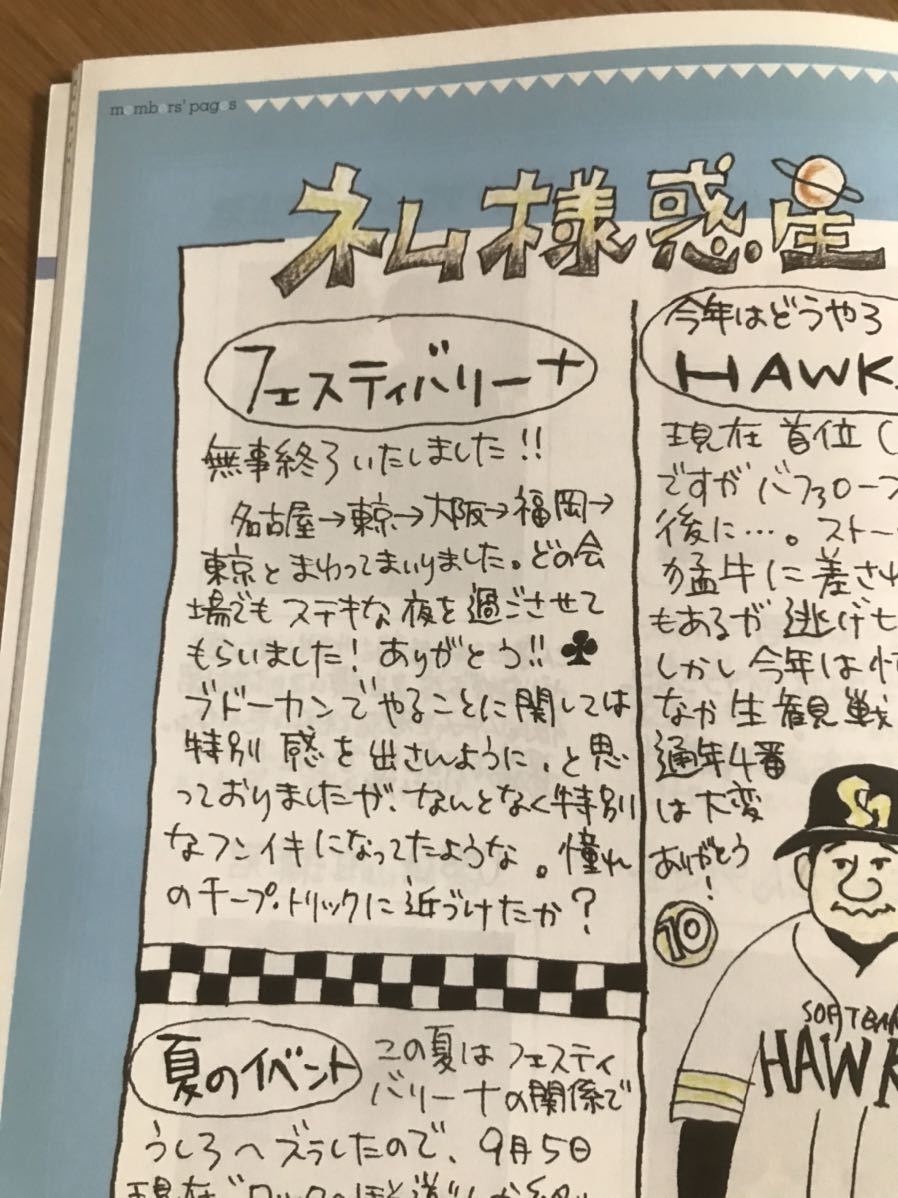 members' pages
ネム様惑星
フェスティバリーナ
無事終了いたしました!!
名古屋→東京→大阪→福岡→
東京とまわってまいりました。どの会
場でもステキな夜を過ごさせて
もらいました!ありがとう!!♣
ブドーカンでやることに関しては
特別感を出さんように、と思
っておりましたが、なんとなく特別
なフンイキになってたような。憧れ
のチープ・トリックに近づけたか?
夏のイベント
この夏はフェスティ
バリーナの関係で
うしろへズラしたので、9月5日
現在"ロックのほそ道"しか
今年はどうやろ
HAWK
現在首位(
ですがバファロー
後に…。ストー
猛牛に差され
もあるが逃げ
しかし今年は
なか生観戦
通年4番
は大変
ありがとう
!
10
SH
SOFTBAN
HAWK